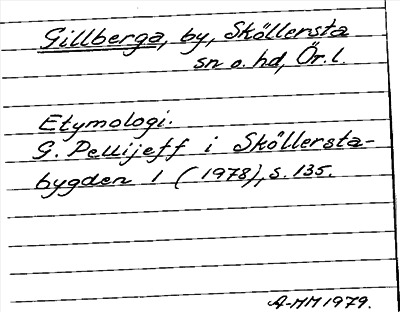 Gillberga, by, Sköllersta
sn o. hd, Ör. l.
Etymologi.
G. Pellijeff i Sköllersta-
bygden 1 (1978), s. 135.
A-MM 1979.